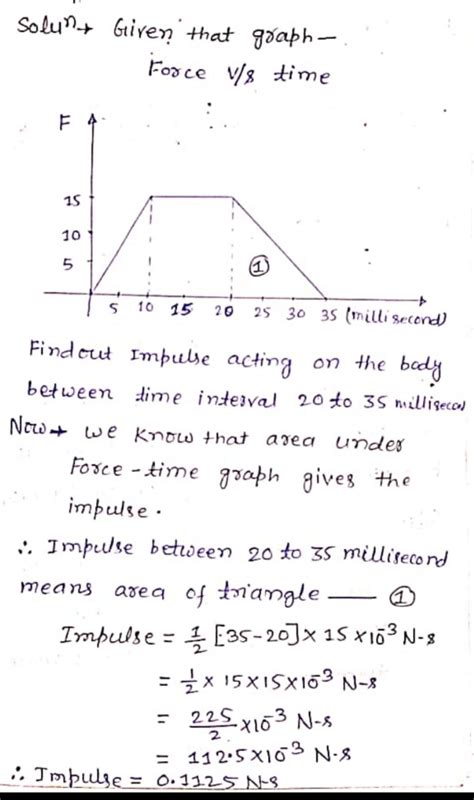 Soluⁿ→ Given that graph —
Force v/s time
F
15
10
5
①
5 10 15 20 25 30 35 (millisecond)
Find out Impulse acting on the body
between time interval 20 to 35 millisecon
Now→ we know that area under
Force-time graph gives the
impulse.
∴ Impulse between 20 to 35 millisecond
means area of triangle — ①
Impulse = 1/2 [35-20] × 15 × 10⁻³ N-s
= 1/2 × 15 × 15 × 10⁻³ N-s
= 225/2 × 10⁻³ N-s
= 112.5 × 10⁻³ N-s
∴ Impulse = 0.1125 N-s